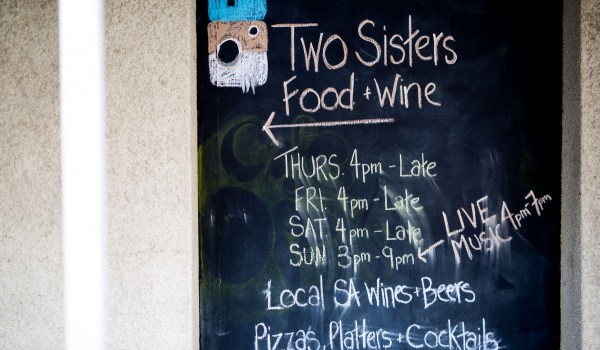 Two Sisters
Food + Wine
THURS. 4pm - Late
FRI. 4pm - Late
SAT. 4pm - Late
SUN 3pm - 9pm
LIVE MUSIC 4pm-7pm
Local SA Wines + Beers
Pizzas, Platters + Cocktails